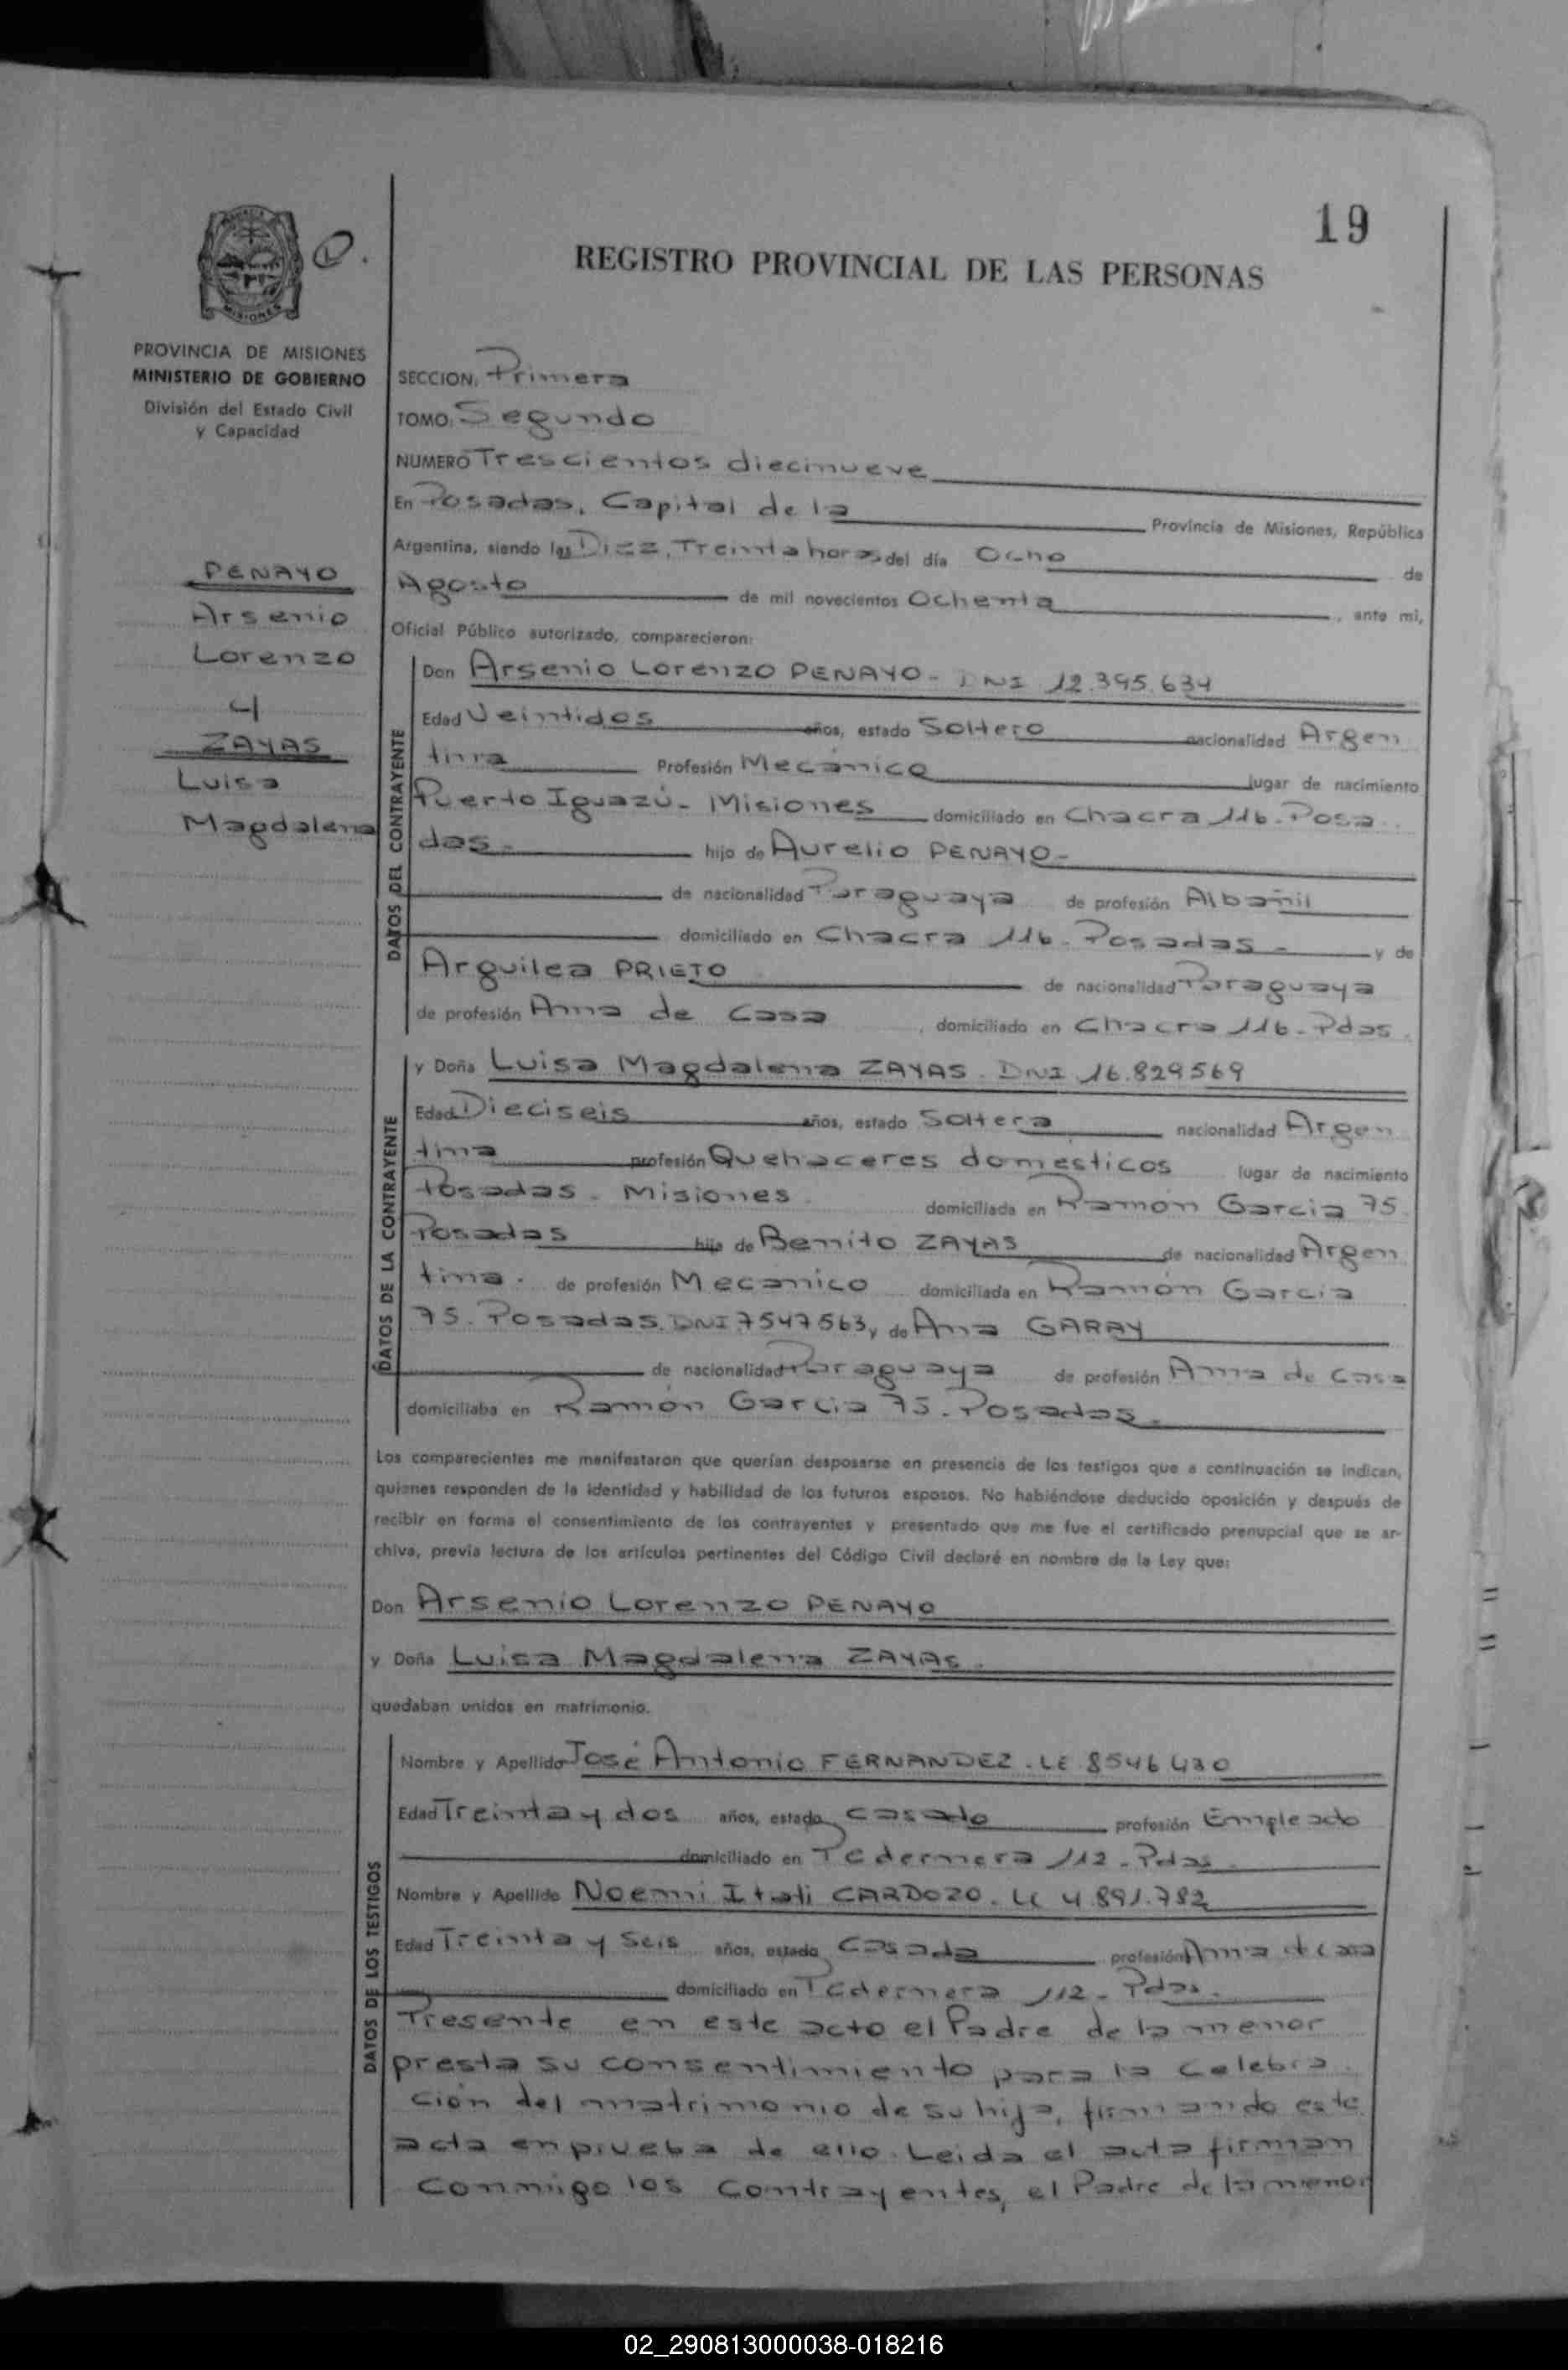 19
REGISTRO PROVINCIAL DE LAS PERSONAS
PROVINCIA DE MISIONES
MINISTERIO DE GOBIERNO
División del Estado Civil
y Capacidad
PENAYO
Arsenio
Lorenzo
y
ZAYAS
Luisa
Magdalena
SECCION: Primera
TOMO: Segundo
NUMERO Trescientos diecinueve
En Posadas, Capital de la Provincia de Misiones, República
Argentina, siendo las Diez, Treinta horas del día Ocho de
Agosto de mil novecientos Ochenta, ante mi,
Oficial Público autorizado, comparecieron:
DATOS DEL CONTRAYENTE
Don Arsenio Lorenzo PENAYO - DNI 12.395.634
Edad Veintidos años, estado Soltero nacionalidad Argen
tina Profesión Mecánico lugar de nacimiento
Puerto Iguazú - Misiones domiciliado en Chacra 116 - Posa
das - hijo de Aurelio PENAYO -
de nacionalidad Paraguaya de profesión Albañil
domiciliado en Chacra 116 - Posadas - y de
Arguilea PRIETO de nacionalidad Paraguaya
de profesión Ama de Casa, domiciliado en Chacra 116 - Pdas.
DATOS DE LA CONTRAYENTE
y Doña Luisa Magdalena ZAYAS - DNI 16.829569
Edad Dieciseis años, estado Soltera nacionalidad Argen
tina profesión Quehaceres domésticos lugar de nacimiento
Posadas - Misiones domiciliada en Ramón Garcia 75
Posadas hija de Benito ZAYAS de nacionalidad Argen
tina. de profesión Mecanico domiciliada en Ramón Garcia
75 - Posadas. DNI 7547563 y de Ana GARAY
de nacionalidad Paraguaya de profesión Ama de Casa
domiciliaba en Ramón Garcia 75 - Posadas -
Los comparecientes me manifestaron que querían desposarse en presencia de los testigos que a continuación se indican,
quienes responden de la identidad y habilidad de los futuros esposos. No habiéndose deducido oposición y después de
recibir en forma el consentimiento de los contrayentes y presentado que me fue el certificado prenupcial que se ar-
chiva, previa lectura de los artículos pertinentes del Código Civil declaré en nombre de la Ley que:
Don Arsenio Lorenzo PENAYO
y Doña Luisa Magdalena ZAYAS -
quedaban unidos en matrimonio.
DATOS DE LOS TESTIGOS
Nombre y Apellido José Antonio FERNANDEZ - LE 8546430
Edad Treinta y dos años, estado Casado profesión Empleado
domiciliado en Pedernera 112 - Pdas -
Nombre y Apellido Noemi Itati CARDOZO - LC 4.891.782
Edad Treinta y Seis años, estado Casada profesión Ama d Casa
domiciliado en Pedernera 112 - Pdas -
Presente en este acto el Padre de la menor
presta su consentimiento para la celebra
ción del matrimonio de su hija, firmando este
acta en prueba de ello. Leida el acta firman
conmigo los contrayentes, el Padre de la menor
02_290813000038-018216